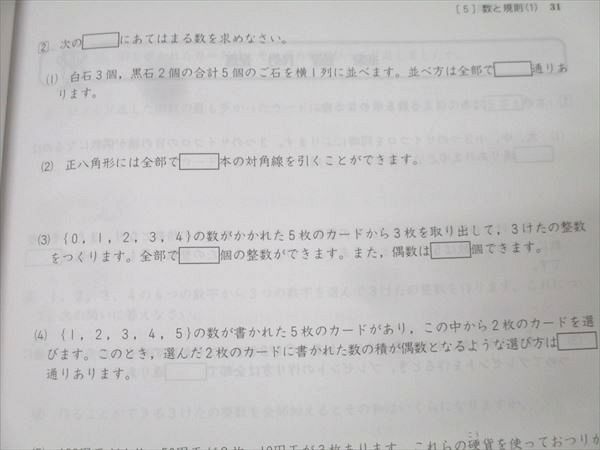 [5] 数と規則(1) 31
2 次の□にあてはまる数を求めなさい。
(1) 白石3個，黒石2個の合計5個のご石を横1列に並べます。並べ方は全部で□通りあ
ります。
(2) 正八角形には全部で□本の対角線を引くことができます。
(3) {0，1，2，3，4}の数がかかれた5枚のカードから3枚を取り出して，3けたの整数
をつくります。全部で□個の整数ができます。また，偶数は□個できます。
(4) {1，2，3，4，5}の数が書かれた5枚のカードがあり，この中から2枚のカードを選
びます。このとき，選んだ2枚のカードに書かれた数の積が偶数となるような選び方は□
通りあります。
10円玉が3枚あります。これらの硬貨を使っておつりが